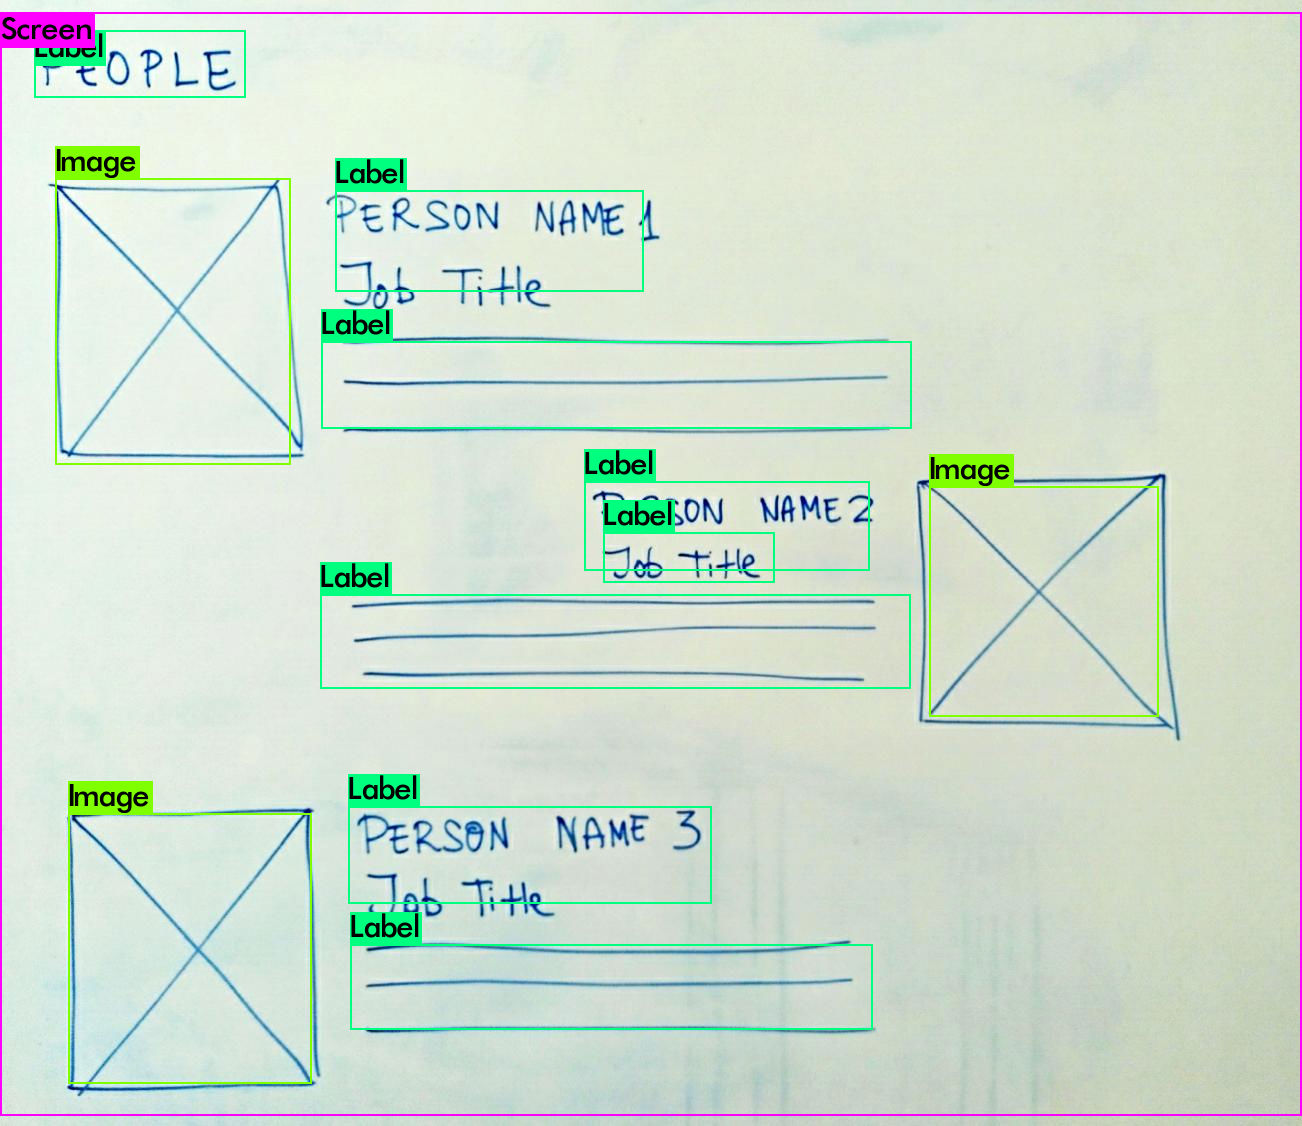 Screen
Label
PEOPLE
Image
Label
PERSON NAME 1
Job Title
Label
Label
Image
PERSON NAME 2
Label
Job Title
Label
Image
Label
PERSON NAME 3
Job Title
Label